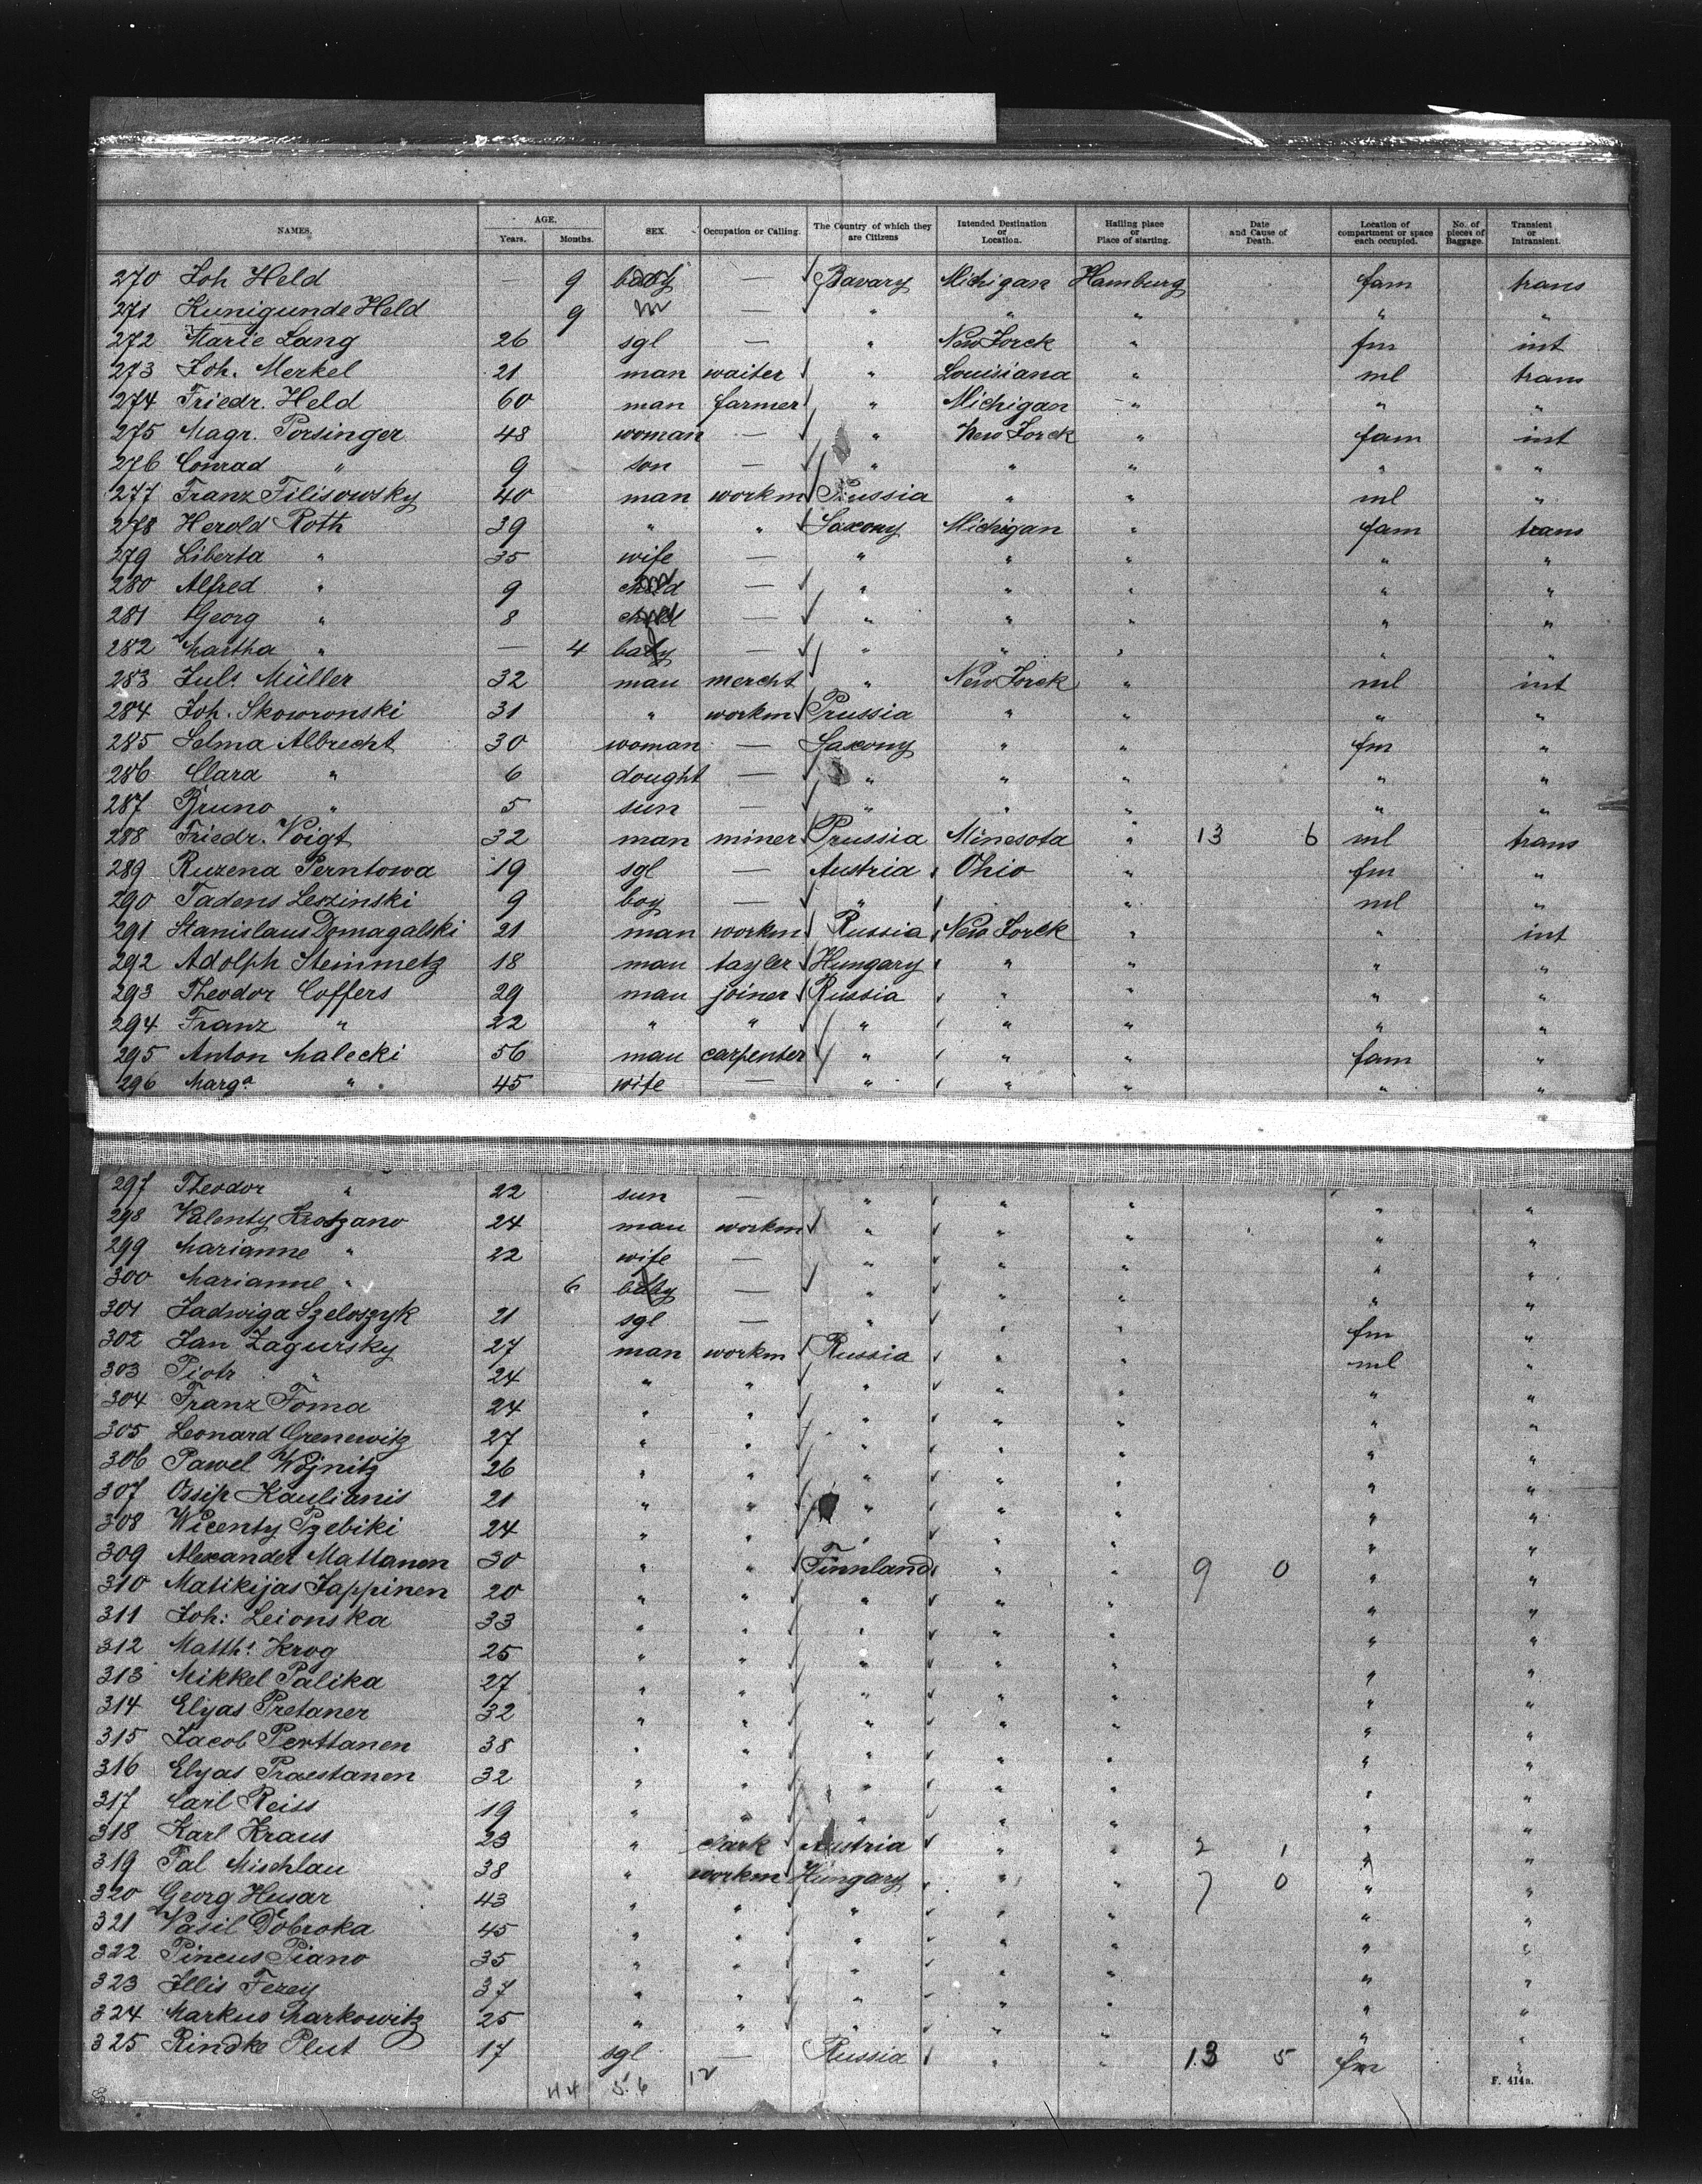 NAMES. AGE. Years. Months. SEX. Occupation or Calling. The Country of which they are Citizens Intended Destination or Location. Hailing place or Place of starting. Date and Cause of Death. Location of compartment or space each occupied. No. of pieces of Baggage. Transient or Intransient.
270 Joh Held — 9 baby — Bavary Michigan Hamburg fam trans
271 Kunigunde Held 9 — " " " " "
272 Marie Lang 26 sgl — " New Jorck " fm int
273 Joh. Merkel 21 man waiter " Louisiana " ml trans
274 Friedr. Held 60 man farmer " Michigan " " "
275 Magr. Porsinger 48 woman — " New Jorck " fam int
276 Conrad " 9 son — " " " " "
277 Franz Filisowsky 40 man workm Prussia " " ml "
278 Herold Roth 39 " " Saxony Michigan " fam trans
279 Liberta " 35 wife — " " " " "
280 Alfred " 9 child — " " " " "
281 Georg " 8 child — " " " " "
282 Martha " — 4 baby — " " " " "
283 Juls. Müller 32 man mercht " New Jorck " ml int
284 Joh. Skowronski 31 " workm Prussia " " " "
285 Selma Albrecht 30 woman — Saxony " " fm "
286 Clara " 6 dought — " " " " "
287 Bruno " 5 sun — " " " " "
288 Friedr. Voigt 32 man miner Prussia Minesota " 13 6 ml trans
289 Ruzena Perntowa 19 sgl — Austria Ohio " fm "
290 Tadens Leszinski 9 boy — " " " ml "
291 Stanislaus Domagalski 21 man workm Russia New Jorck " " int
292 Adolph Steinmetz 18 man tayler Hungary " " " "
293 Theodor Coffers 29 man joiner Russia " " " "
294 Franz " 22 " " " " " " "
295 Anton Malecki 56 man carpenter " " " fam "
296 Marga " 45 wife — " " " " "
297 Theodor " 22 sun — " " " " "
298 Valenty Krotzano 24 man workm " " " " "
299 Marianne " 22 wife — " " " " "
300 Marianne " 6 baby — " " " " "
301 Jadwiga Szeloszyk 21 sgl — " " " fm "
302 Jan Zagursky 27 man workm Russia " " ml "
303 Piotr " 24 " " " " " " "
304 Franz Foma 24 " " " " " " "
305 Leonard Grenewitz 27 " " " " " " "
306 Pawel Wojnitz 26 " " " " " " "
307 Ossip Kaulianis 21 " " " " " " "
308 Wicenty Pzebiki 24 " " " " " " "
309 Alexander Mattanen 30 " " Finnland " " 9 0 " "
310 Matikijas Jappinen 20 " " " " " " "
311 Joh: Leionska 33 " " " " " " "
312 Matth: Krog 25 " " " " " " "
313 Mikkel Palika 27 " " " " " " "
314 Elyas Pretaner 32 " " " " " " "
315 Jacob Perttanen 38 " " " " " " "
316 Elyas Praestanen 32 " " " " " " "
317 Carl Reiss 19 " " " " " " "
318 Karl Kraus 23 " clark Austria " " 2 1 " "
319 Pal Mischlau 38 " workm Hungary " " 7 0 " "
320 Georg Husar 43 " " " " " " "
321 Vasil Dobroka 45 " " " " " " "
322 Pincus Piano 35 " " " " " " "
323 Illis Fezey 37 " " " " " " "
324 Markus Markowitz 25 " " " " " " "
325 Rindke Plut 17 sgl — Russia " " 13 5 fm "
44 5.6 12
F. 414a.